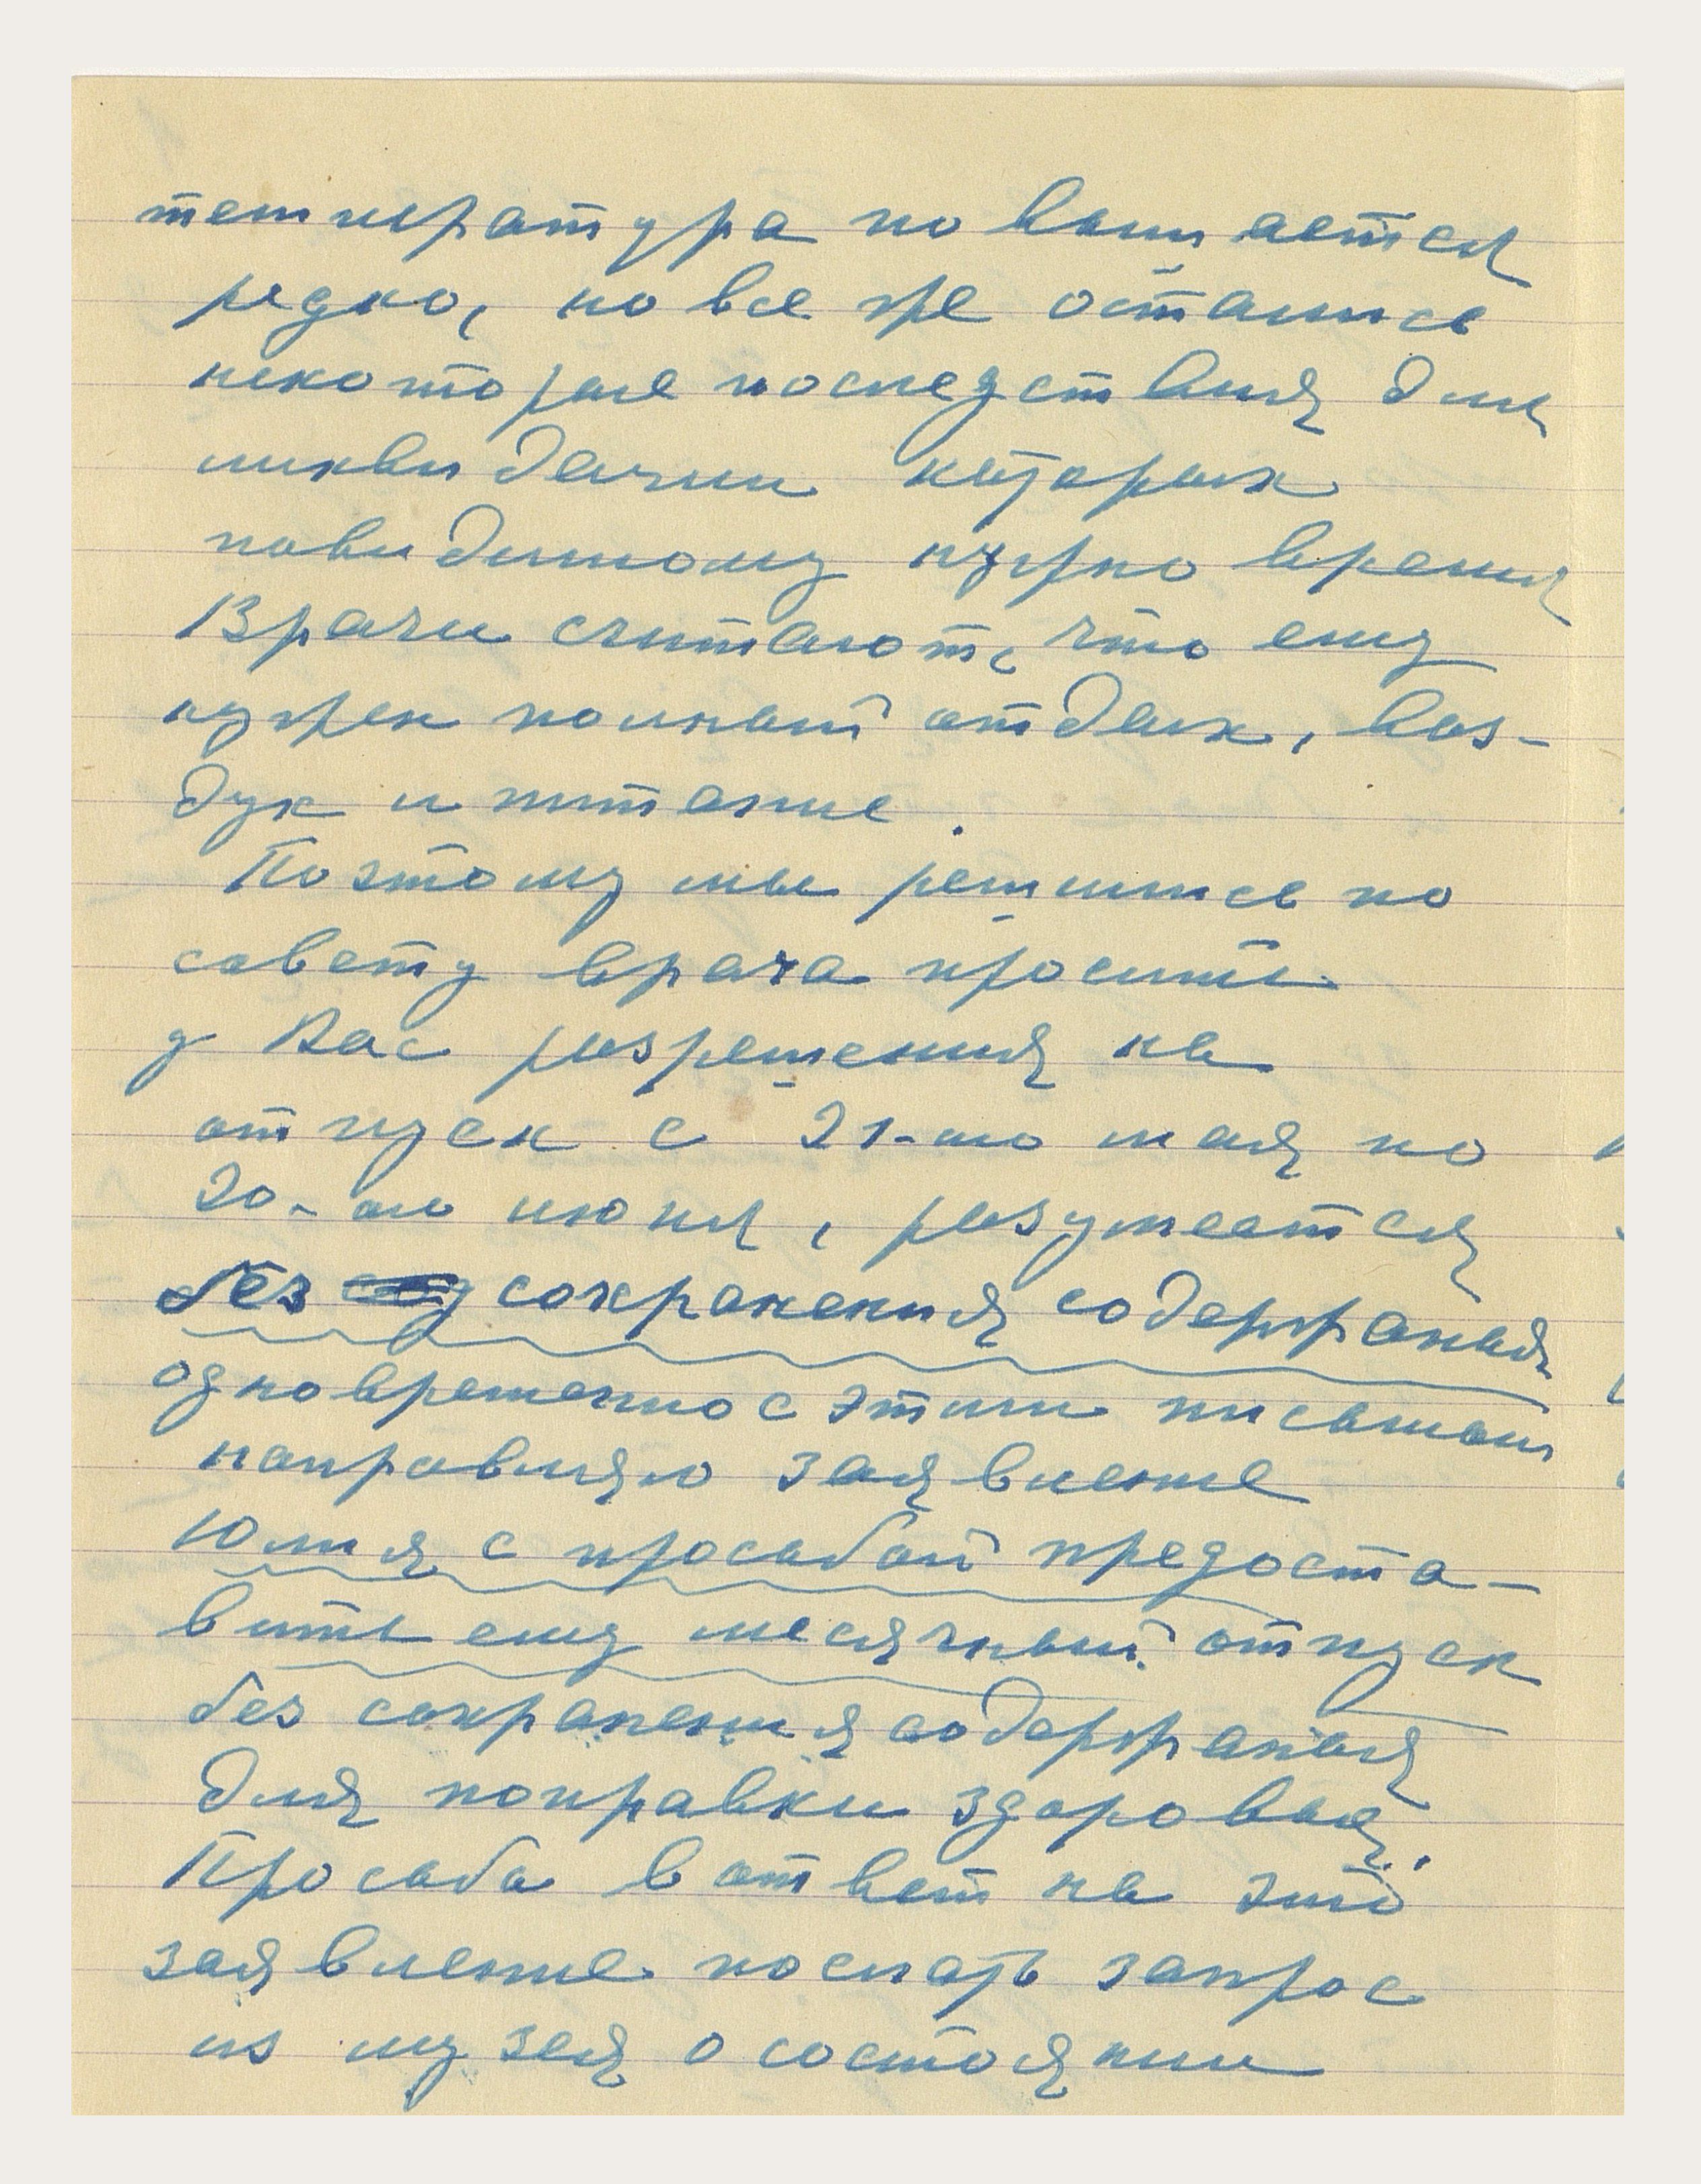 температура повышается
редко, но все же остались
некоторые последствия для
ликвидации которых
повидимому нужно время
Врачи считают, что ему
нужен полный отдых, воз-
дух и питание.
Поэтому мы решились по
совету врача просить
у Вас разрешения на
отпуск с 21-го мая по
20-ое июня, разумеется
без сохранения содержания
одновременно с этим письмом
направляю заявление
Юлия с просьбой предоста-
вить ему месячный отпуск
без сохранения содержания
для поправки здоровья.
Просьба в ответ на это
заявление послать запрос
из музея о состоянии